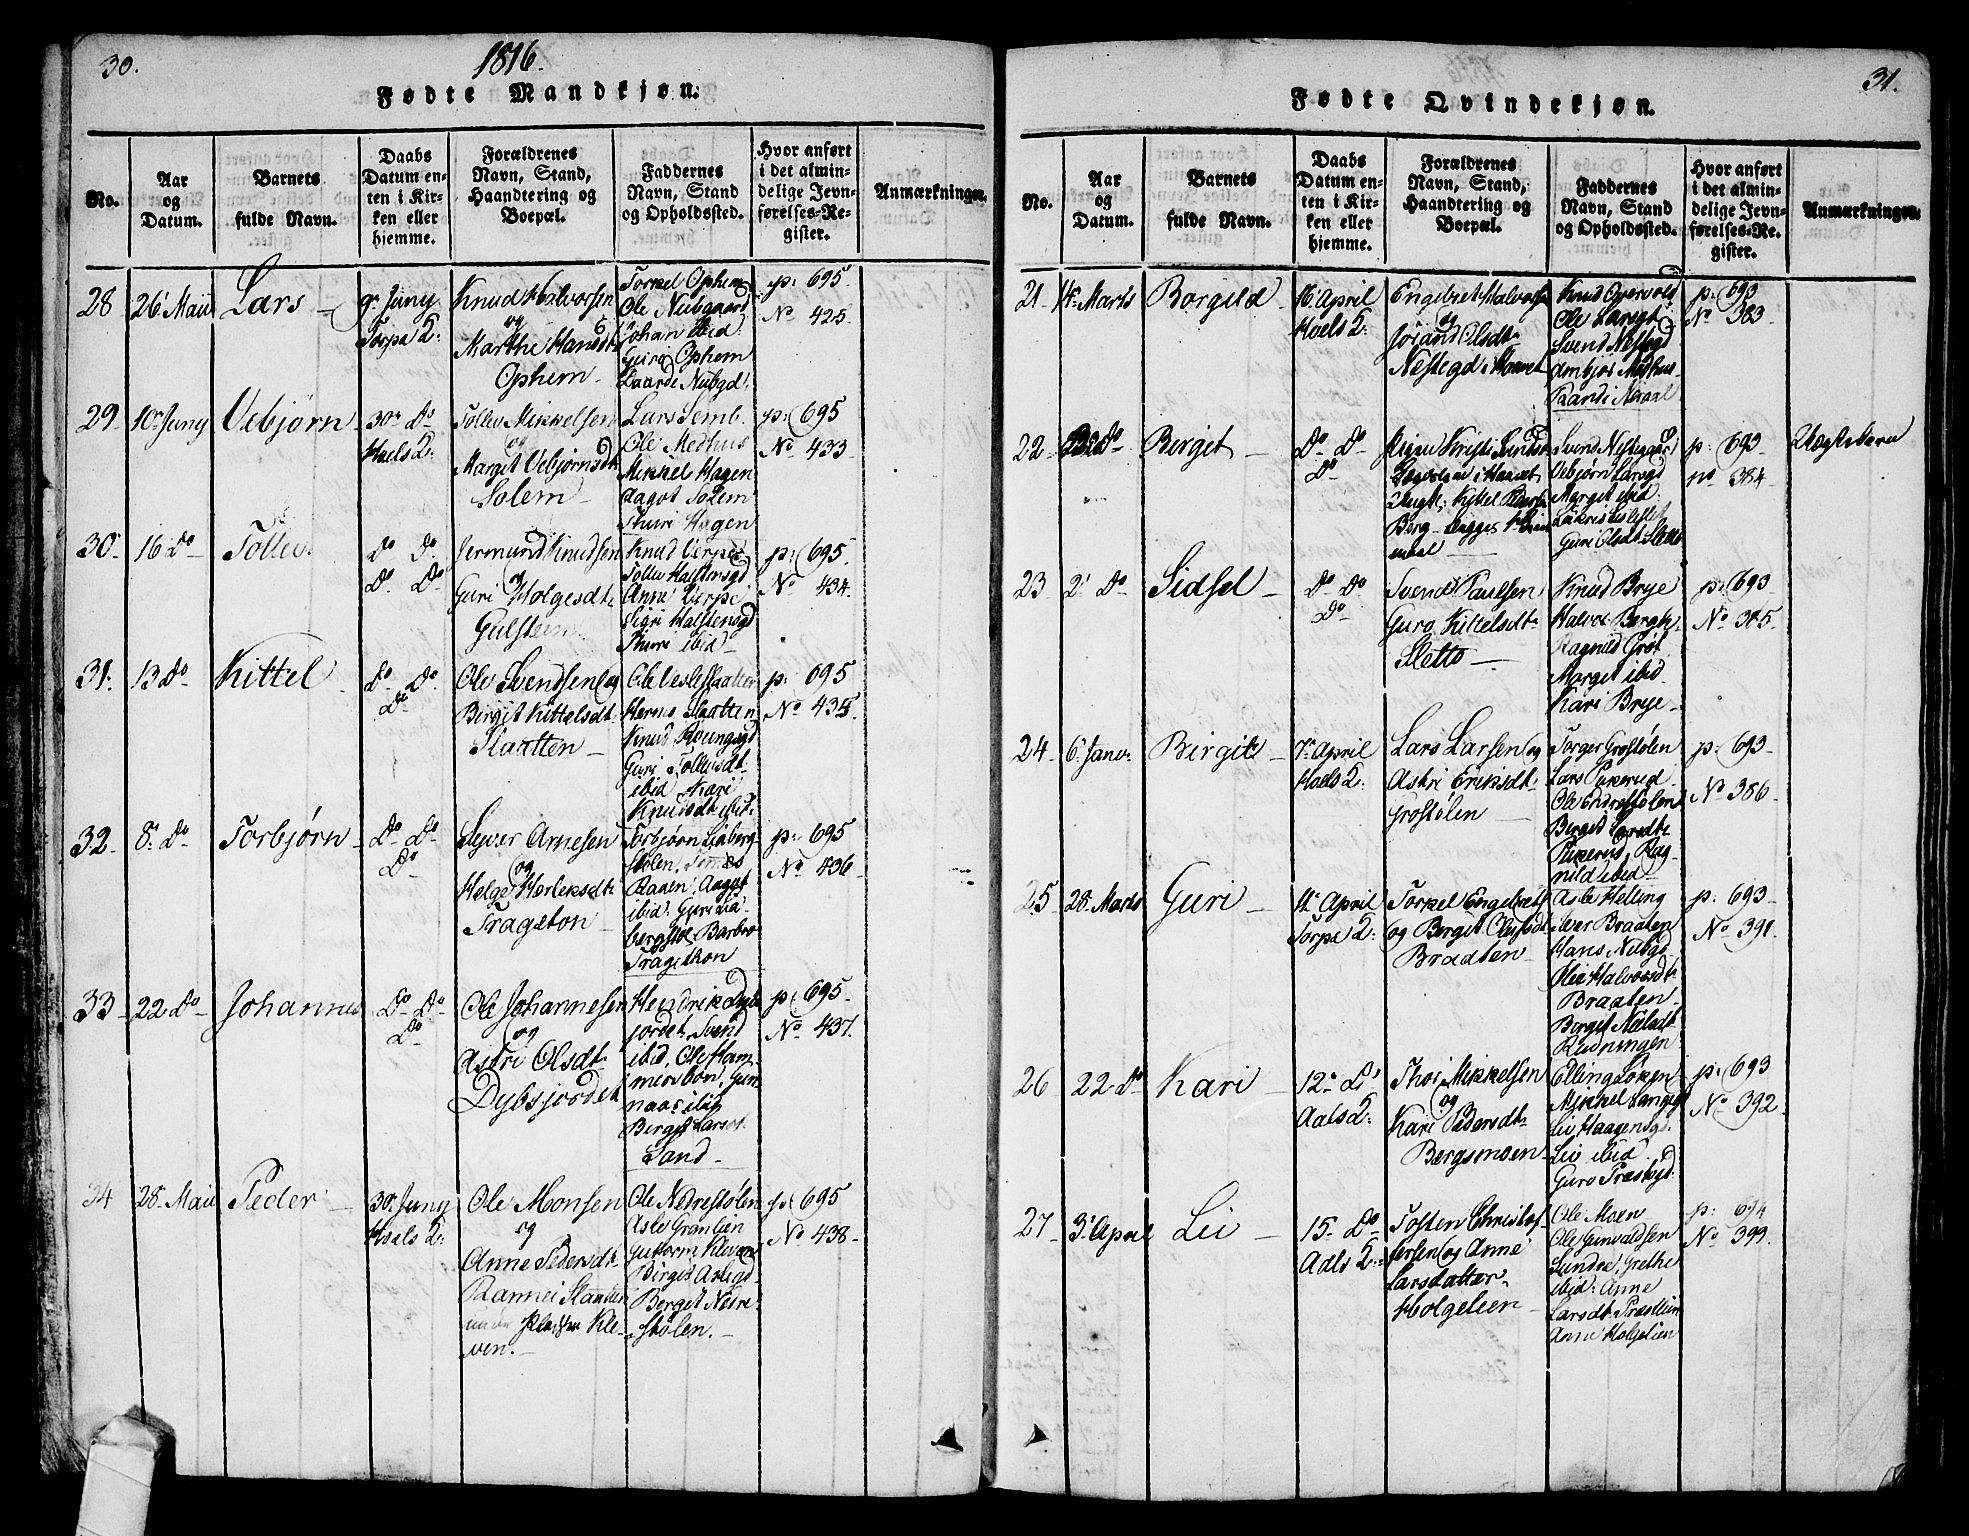 30.
1816.
Fødte Mandkjøn.
No.
Aar og Datum.
Barnets fulde Navn.
Daabs Datum enten i Kirken eller hjemme.
Forældrenes Navn, Stand, Haandtering og Boepæl.
Faddernes Navn, Stand og Opholdssted.
Hvor anført i det almindelige Jevnførelses-Register.
Anmærkninger.
28 26 Maii Lars
9 Juny
Torpe
Knud Halvorsen
og
Marthe Hansdt
Ophem
Torkel Ophem
Ole Nubgaard
Johan ibid
Guro Ophem
Nubgd.
p: 695.
No 425.
29 10 Juny Vebjørn
30 Do
Tollev Mikkelsen
og
Marget Vebjørnsdt
Solem
Lars Semb
Ole Medhus
Mikkel Hagen
Aagot Solem
Thuri Hagen
p: 695
No 433
30 16 Do Tollev
Do Do
Do Do
Jermund Knudsen
og
Guri Holgesdt
Gulstein
Knud Verpe
Tollev Halstensgd
Anne Verpe
Sigri Halstensgd
Thuri ibid
p: 695.
No 434.
31. 13 Do Kittel
Do Do
Do
Ole Svendsen og
Birgit Kittelsdt.
Slaatten
Ole Slaatten
Slaatten
Knud
Guri Tollevsdt
ibid Kari
Knudsdt ibid.
p: 695
No 435.
32 8 Do Torbjørn
Do Do
Do
Syver Arnesen
og
Helge Herleksdt
Trageton
Torbjørn Liaberg-
stølen, Tomas
Raaen, Aagot
ibid: Guri Lia
bergstøl Barbro
Tragethon
p: 695
No 436
33 22 Do Johannes
Do Do
Do
Ole Johannesen
og
Astri Olsdt
Dybsjordet
Hendrik Dybs
jordet, Svend
ibid, Ole Ham
mersbøn, Gun
naar ibid
Berget Larsdt
Sand
p: 695.
No 437.
34 28 Maii Peder
30 Juny
Ole Monsen
og
Anne Pedersdt
Kle-
ven.
Ole Nedrestølen
Asle Grønlien
Guttorm Kleven
Birgit
Berget Nedre-
stølen.
p: 695
No 438.
31.
Fødte Qvindekjøn.
No.
Aar og Datum.
Barnets fulde Navn.
Daabs Datum enten i Kirken eller hjemme.
Forældrenes Navn, Stand, Haandtering og Boepæl.
Faddernes Navn, Stand og Opholdssted.
Hvor anført i det almindelige Jevnførelses-Register.
Anmærkninger.
21 14 Marts Borgild
April
Engebret Halvors
og
Jørand Olsdt
Nestegd i Hovet
Knud
Ole
Svend Nestegd
Ambjør Medhus
p: 693
No 383.
22 Do Berget
Do Do
Do
Svend Nestegaard
Vebjørn
Marget ibid:
Guri Olsdt Sletto
p: 693
no 384.
Uægtebarn
23 2 Do Sidsel
Do Do
Do
Svend Paulsen
Guro Kittelsdt
Sletto
Knud Brye
Halvor Bergh
Ragnild Grøt
Marget ibid
Kari Brye
p: 693
No 385.
24 6 Janv: Birgit
7 April
Lars Larsen og
Astri Eriksdt
Grostølen
Torger Grostølen
Lars Pukerud
Ole Endrestølen
Berget
Pukerud, Rag-
nild ibid
p: 693
No 386.
25 28 Marts Guri
April
Torpe
Torkel Engebrets
og Berget Olufsdt
Braaten
Asle Helling
Iver Braaten
Hans Nubgd
Halvorsdt
Braaten
Berget
Rudningen
p: 693
No 391.
26 22 Do Kari
12 Do
Aals
Thor Mikkelsen
og
Kari Pedersdt
Bergsmoen
Elling Løken
Mikkel
Liv Haagensgd
Liv ibid
Guro
p: 693
No 392.
27 3 April Lei
15. Do
Aals
Tosten Christof
fersen og Anne
Larsdatter
Holgelien
Ole Moen
Ole Gunvaldsen
Sundre, Grethe
ibid: Anne
Larsdt Præstlien
Anne Holgelien
p: 694
No 399.